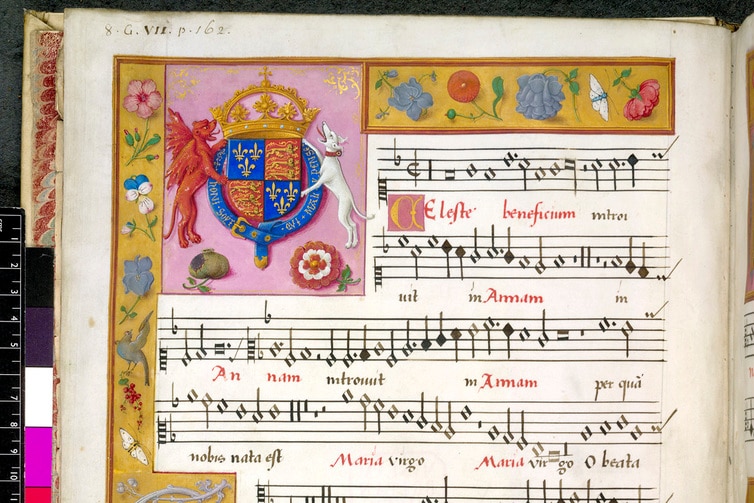 8. G. VII. p. 162.
HONI SOIT QVI MAL Y PENSE
Celeste beneficium introi
uit in Annam in
An nam introiuit in Annam per quā
nobis nata est Maria virgo Maria virgo O beata